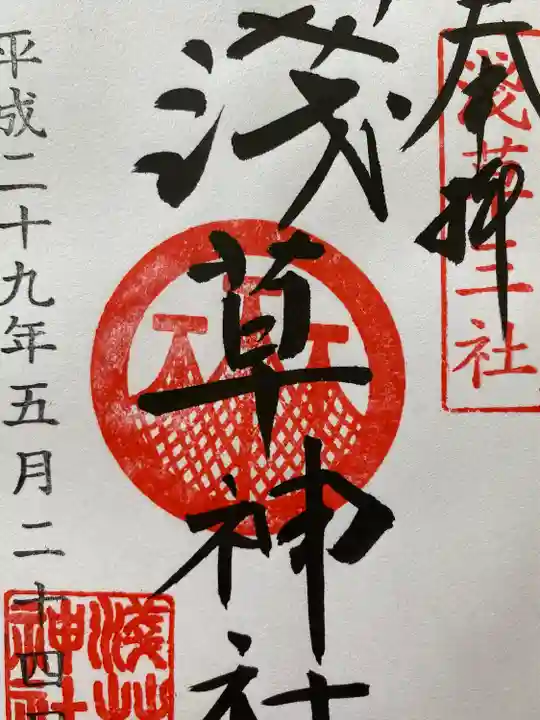 奉拝
淺草三社
浅草神社
平成二十九年五月二十四日
淺草神社